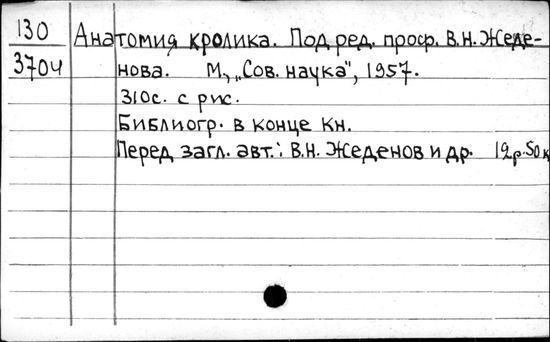 130 Анатомия кролика. Под ред. проф. В.Н. Жеде-
3704 нова. М., „Сов. наука", 1957.
310с. с рис.
Библиогр. в конце кн.
Перед загл. авт.: В.Н. Жеденов и др. 12р.50к